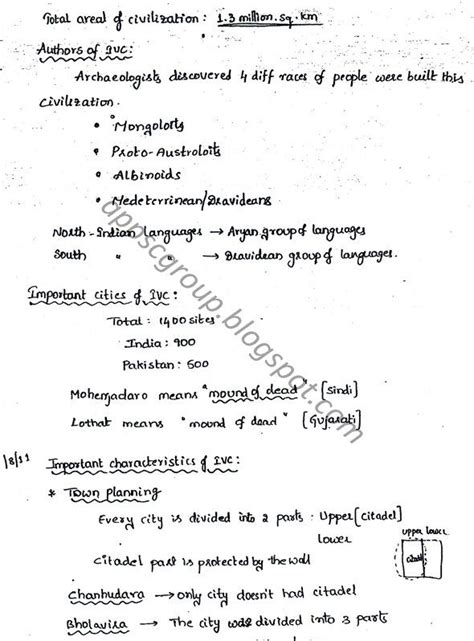 Total areal of civilization : 1.3 million.sq.km
Authors of IVC:
Archaeologists discovered 4 diff races of people were built this
civilization.
• Mongoloits
• Proto-Austroloits
• Albinoids
• Medeterrinean/Dravideans
North-Indian languages → Aryan group of languages
South " " → Dravidean group of languages.
Important cities of IVC:
Total : 1400 sites
India : 900
Pakistan : 500
Mohenjadaro means "mound of dead" [Sindi]
Lothat means "mound of dead" [Gujarati]
18/11 Important characteristics of IVC:
* Town planning
Every city is divided into 2 parts : Upper [citadel]
Lower
upper lower
citadel
Citadel part is protected by the wall
Chanhudara → only city doesn't had citadel
Bholavira → The city was divided into 3 parts
appscgroup.blogspot.com